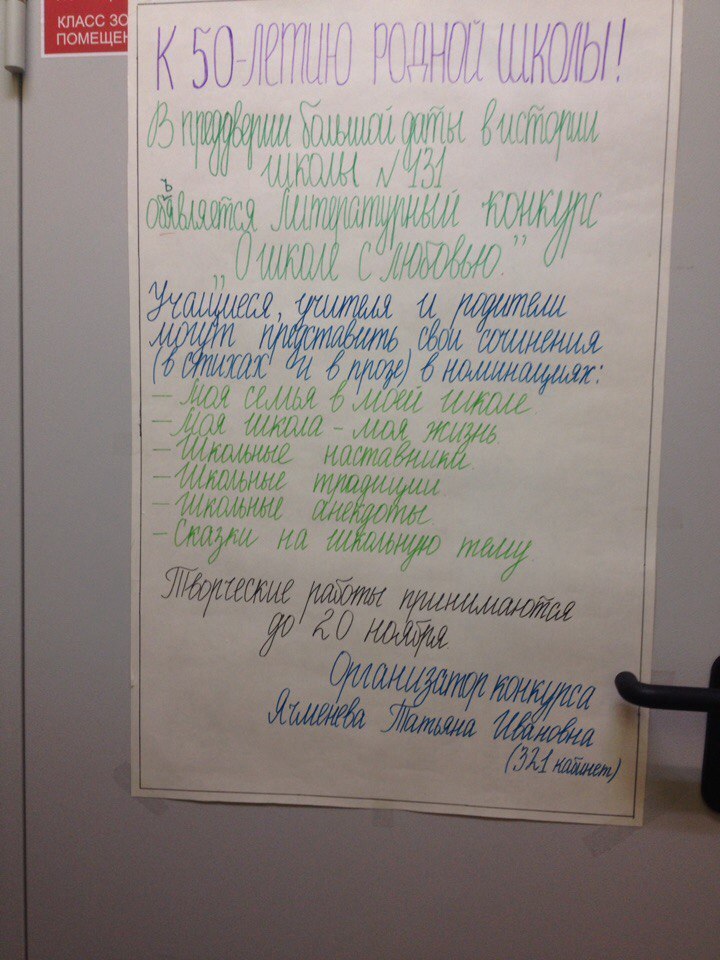 КЛАСС ЗО
ПОМЕЩЕН
К 50-ЛЕТИЮ РОДНОЙ ШКОЛЫ!
В преддверии большой даты в истории
школы №131
объявляется Литературный конкурс
„О школе с любовью."
Учащиеся, учителя и родители
могут представить свои сочинения
(в стихах и в прозе) в номинациях:
– Моя семья в моей школе.
– Моя школа – моя жизнь.
– Школьные наставники.
– Школьные традиции
– Школьные анекдоты.
– Сказки на школьную тему.
Творческие работы принимаются
до 20 ноября.
Организатор конкурса
Ячменева Татьяна Ивановна
(321 кабинет)